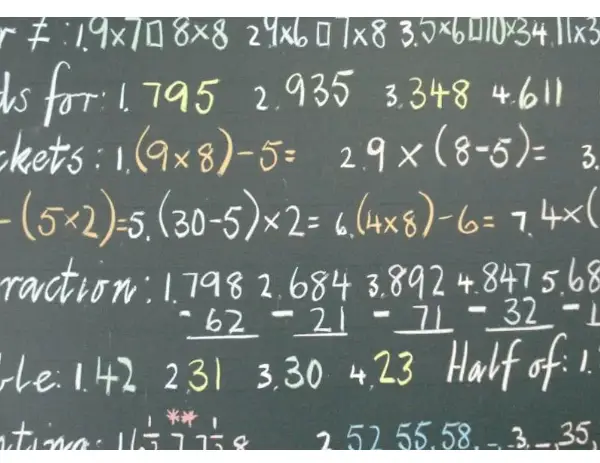 r ≠ : 1. 9×7 □ 8×8 2. 9×6 □ 7×8 3. 5×6 □ 10×3 4. 11×3
ds for: 1. 795 2. 935 3. 348 4. 611
ckets: 1. (9×8)-5= 2. 9×(8-5)= 3.
-(5×2)= 5. (30-5)×2= 6. (4×8)-6= 7. 4×(
raction: 1. 798 2. 684 3. 892 4. 847 5. 68
- 62 - 21 - 71 - 32 - 1
ble: 1. 42 2. 31 3. 30 4. 23 Half of: 1.
**
nting: 2. 52, 55, 58, -, 3. -, 35,